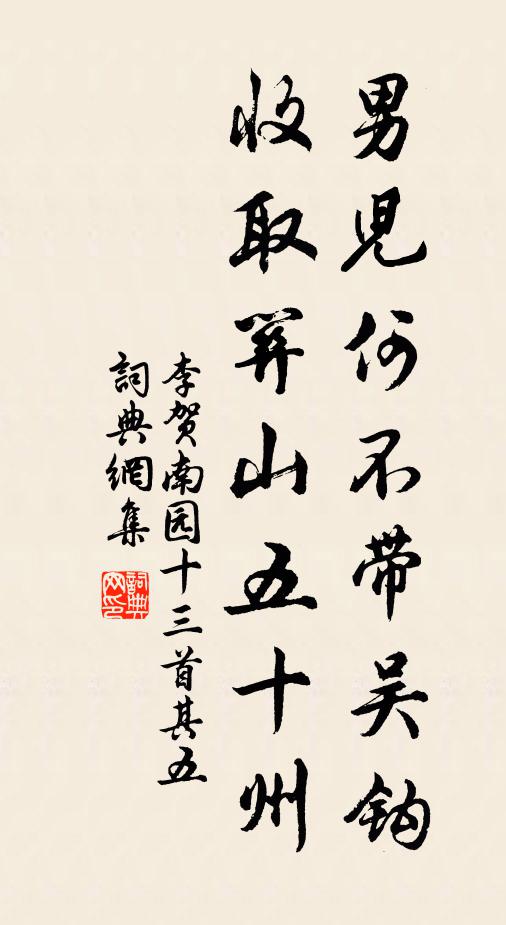 男兒何不带吴鈎
收取關山五十州
李贺南园十三首其五
詞典網集
詞典網印